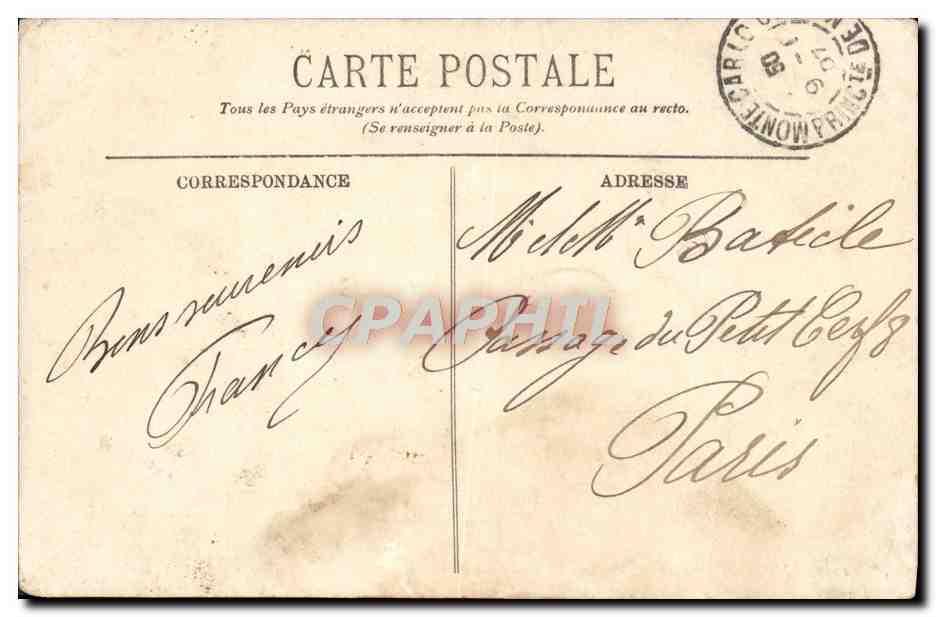 CARTE POSTALE
Tous les Pays étrangers n'acceptent pas la Correspondance au recto.
(Se renseigner à la Poste).
MONTE CARLO
PRINCTE DE
09
CORRESPONDANCE
Bons souvenirs
Francy
ADRESSE
Mr et Mme Baticle
Passage du Petit Cerf 8
Paris
CPAPHIL